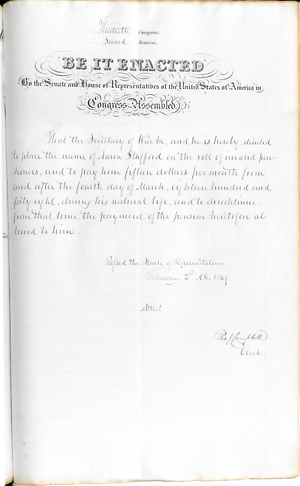 Thirtieth Congress
Second Session,
BE IT ENACTED
By the Senate and House of Representatives of the United States of America in
Congress Assembled
That the Secretary of War be, and he is hereby, directed
to place the name of Aaron Stafford on the roll of invalid pen-
sioners, and to pay him fifteen dollars per month from
and after the fourth day of March, eighteen hundred and
forty eight, during his natural life, and to discontinue
from that time the payment of the pension heretofore al-
lowed to him.
Passed the House of Representatives
February 2d 1849
Attest
Campbell
Clerk.